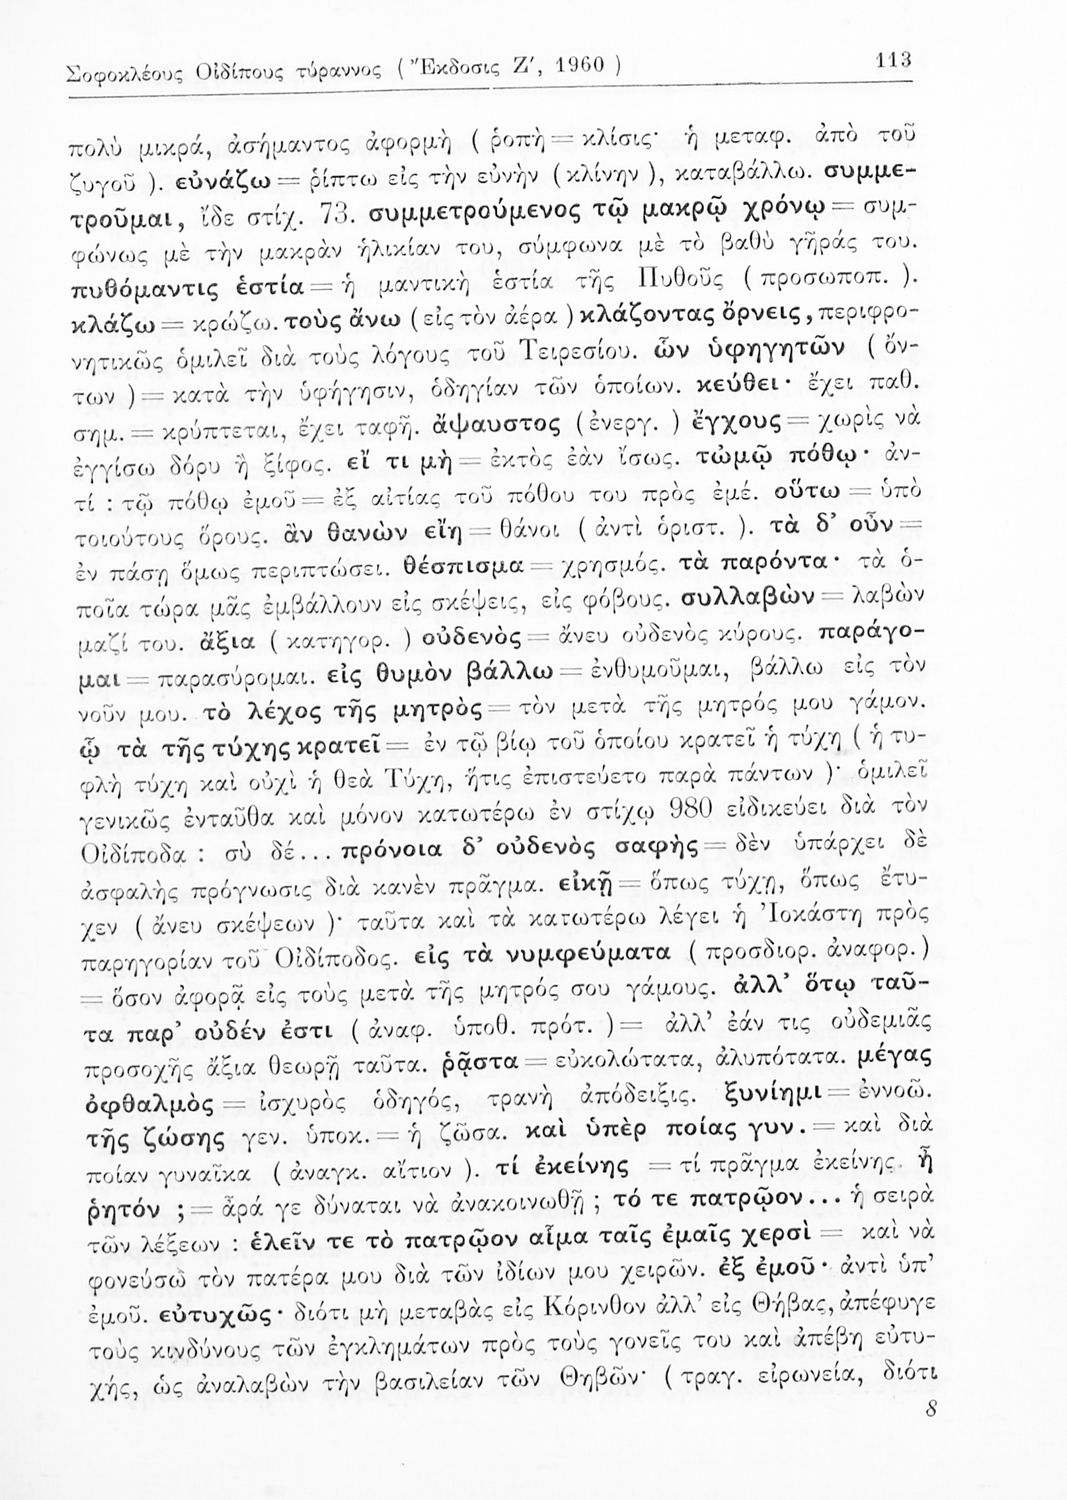 Σοφοκλέους Οἰδίπους τύραννος ( Ἔκδοσις Ζ′, 1960 ) 113
πολὺ μικρά, ἀσήμαντος ἀφορμὴ ( ῥοπὴ = κλίσις· ἡ μεταφ. ἀπὸ τοῦ
ζυγοῦ ). εὐνάζω = ῥίπτω εἰς τὴν εὐνὴν ( κλίνην ), καταβάλλω. συμμε-
τροῦμαι, ἴδε στίχ. 73. συμμετρούμενος τῷ μακρῷ χρόνῳ = συμ-
φώνως μὲ τὴν μακρὰν ἡλικίαν του, σύμφωνα μὲ τὸ βαθὺ γῆράς του.
πυθόμαντις ἑστία = ἡ μαντικὴ ἑστία τῆς Πυθοῦς ( προσωποπ. ).
κλάζω = κρώζω. τοὺς ἄνω ( εἰς τὸν ἀέρα ) κλάζοντας ὄρνεις, περιφρο-
νητικῶς ὁμιλεῖ διὰ τοὺς λόγους τοῦ Τειρεσίου. ὧν ὑφηγητῶν ( ὄν-
των ) = κατὰ τὴν ὑφήγησιν, ὁδηγίαν τῶν ὁποίων. κεύθει· ἔχει παθ.
σημ. = κρύπτεται, ἔχει ταφῆ. ἄψαυστος ( ἐνεργ. ) ἔγχους = χωρὶς νὰ
ἐγγίσω δόρυ ἢ ξίφος. εἴ τι μὴ = ἐκτὸς ἐὰν ἴσως. τὠμῷ πόθῳ· ἀν-
τί : τῷ πόθῳ ἐμοῦ = ἐξ αἰτίας τοῦ πόθου του πρὸς ἐμέ. οὕτω = ὑπὸ
τοιούτους ὅρους. ἂν θανὼν εἴη = θάνοι ( ἀντὶ ὁριστ. ). τὰ δ’ οὖν =
ἐν πάσῃ ὅμως περιπτώσει. θέσπισμα = χρησμός. τὰ παρόντα· τὰ ὁ-
ποῖα τώρα μᾶς ἐμβάλλουν εἰς σκέψεις, εἰς φόβους. συλλαβὼν = λαβὼν
μαζί του. ἄξια ( κατηγορ. ) οὐδενὸς = ἄνευ οὐδενὸς κύρους. παράγο-
μαι = παρασύρομαι. εἰς θυμὸν βάλλω = ἐνθυμοῦμαι, βάλλω εἰς τὸν
νοῦν μου. τὸ λέχος τῆς μητρὸς = τὸν μετὰ τῆς μητρός μου γάμον.
ᾧ τὰ τῆς τύχης κρατεῖ = ἐν τῷ βίῳ τοῦ ὁποίου κρατεῖ ἡ τύχη ( ἡ τυ-
φλὴ τύχη καὶ οὐχὶ ἡ θεὰ Τύχη, ἥτις ἐπιστεύετο παρὰ πάντων )· ὁμιλεῖ
γενικῶς ἐνταῦθα καὶ μόνον κατωτέρω ἐν στίχῳ 980 εἰδικεύει διὰ τὸν
Οἰδίποδα : σὺ δέ... πρόνοια δ’ οὐδενὸς σαφὴς = δὲν ὑπάρχει δὲ
ἀσφαλὴς πρόγνωσις διὰ κανὲν πρᾶγμα. εἰκῇ = ὅπως τύχῃ, ὅπως ἔτυ-
χεν ( ἄνευ σκέψεων )· ταῦτα καὶ τὰ κατωτέρω λέγει ἡ Ἰοκάστη πρὸς
παρηγορίαν τοῦ Οἰδίποδος. εἰς τὰ νυμφεύματα ( προσδιορ. ἀναφορ. )
= ὅσον ἀφορᾷ εἰς τοὺς μετὰ τῆς μητρός σου γάμους. ἀλλ’ ὅτῳ ταῦ-
τα παρ’ οὐδέν ἐστι ( ἀναφ. ὑποθ. πρότ. ) = ἀλλ’ ἐάν τις οὐδεμιᾶς
προσοχῆς ἄξια θεωρῇ ταῦτα. ῥᾷστα = εὐκολώτατα, ἀλυπότατα. μέγας
ὀφθαλμὸς = ἰσχυρὸς ὁδηγός, τρανὴ ἀπόδειξις. ξυνίημι = ἐννοῶ.
τῆς ζώσης γεν. ὑποκ. = ἡ ζῶσα. καὶ ὑπὲρ ποίας γυν. = καὶ διὰ
ποίαν γυναῖκα ( ἀναγκ. αἴτιον ). τί ἐκείνης = τί πρᾶγμα ἐκείνης. ἦ
ῥητόν ; = ἆρά γε δύναται νὰ ἀνακοινωθῇ ; τό τε πατρῷον... ἡ σειρὰ
τῶν λέξεων : ἑλεῖν τε τὸ πατρῷον αἷμα ταῖς ἐμαῖς χερσὶ = καὶ νὰ
φονεύσω τὸν πατέρα μου διὰ τῶν ἰδίων μου χειρῶν. ἐξ ἐμοῦ· ἀντὶ ὑπ’
ἐμοῦ. εὐτυχῶς· διότι μὴ μεταβὰς εἰς Κόρινθον ἀλλ’ εἰς Θήβας, ἀπέφυγε
τοὺς κινδύνους τῶν ἐγκλημάτων πρὸς τοὺς γονεῖς του καὶ ἀπέβη εὐτυ-
χής, ὡς ἀναλαβὼν τὴν βασιλείαν τῶν Θηβῶν· ( τραγ. εἰρωνεία, διότι
8